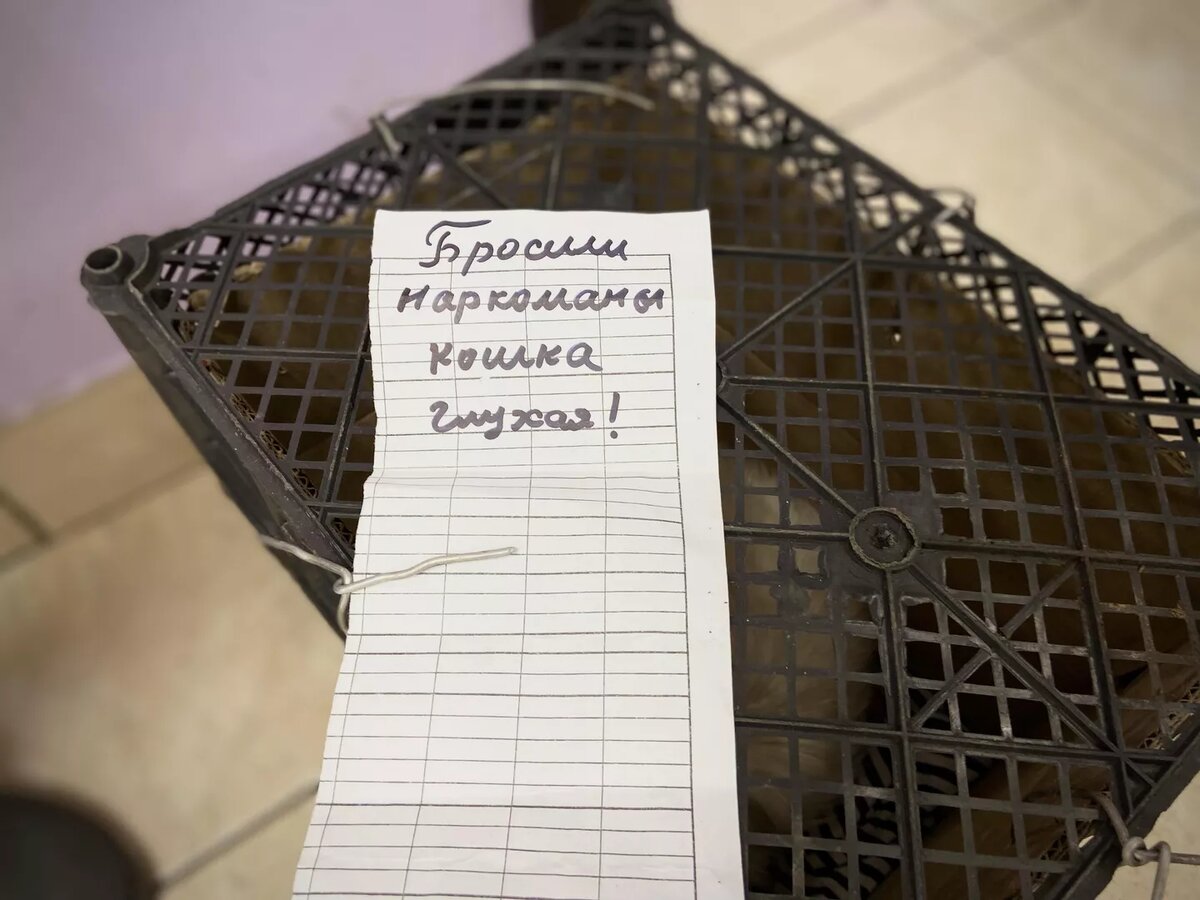 Бросили
наркоманы
кошка
глухая!